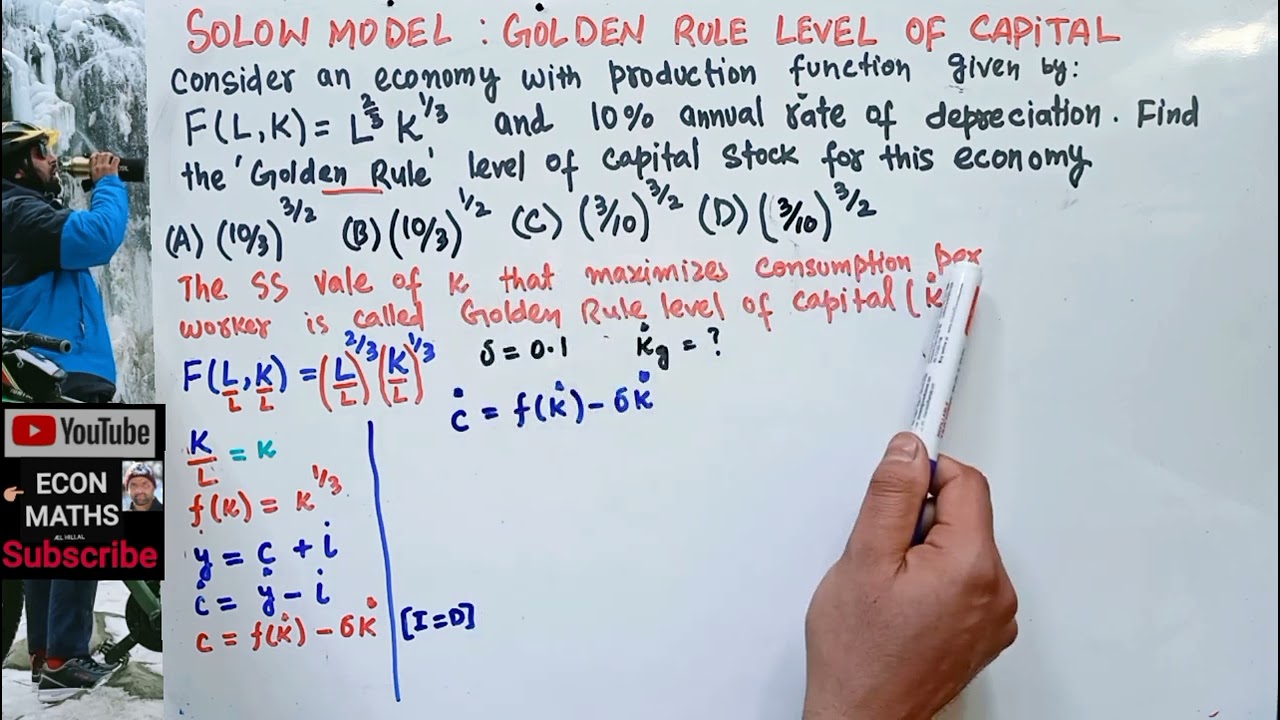 SOLOW MODEL : GOLDEN RULE LEVEL OF CAPITAL
Consider an economy with production function given by:
F(L,K) = L^2/3 K^1/3 and 10% annual rate of depreciation. Find
the 'Golden Rule' level of capital stock for this economy
(A) (10/3)^3/2 (B) (10/3)^1/2 (C) (3/10)^3/2 (D) (3/10)^3/2
The SS vale of K that maximizes consumption per
worker is called Golden Rule level of capital (k̇
F(L/L, K/L) = (L/L)^2/3 (K/L)^1/3 δ = 0.1 k̇g = ?
ċ = f(k̇) - δk̇
K/L = K
f(K) = K^1/3
y = c + i
ċ = ẏ - i
c = f(k̇) - δk̇ [I=D]
YouTube
ECON
MATHS
Subscribe